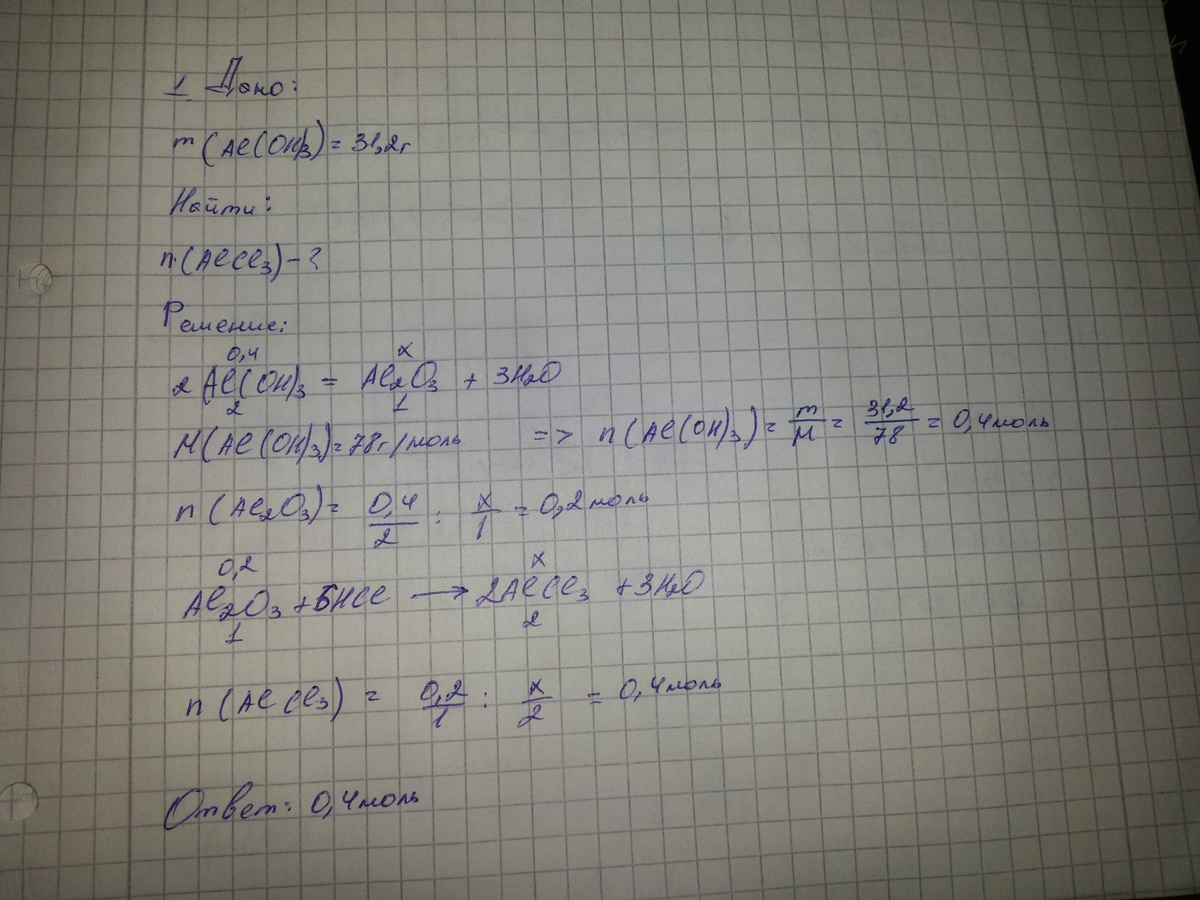 1 Дано:
m(Al(OH)3) = 31,2г
Найти:
n(AlCl3) - ?
Решение:
0,4 x
2Al(OH)3 = Al2O3 + 3H2O
2 1
M(Al(OH)3) = 78г/моль => n(Al(OH)3) = m/M = 31,2/78 = 0,4моль
n(Al2O3) = 0,4/2 : x/1 = 0,2моль
0,2 x
Al2O3 + 6HCl → 2AlCl3 + 3H2O
1 2
n(AlCl3) = 0,2/1 : x/2 = 0,4моль
Ответ: 0,4моль